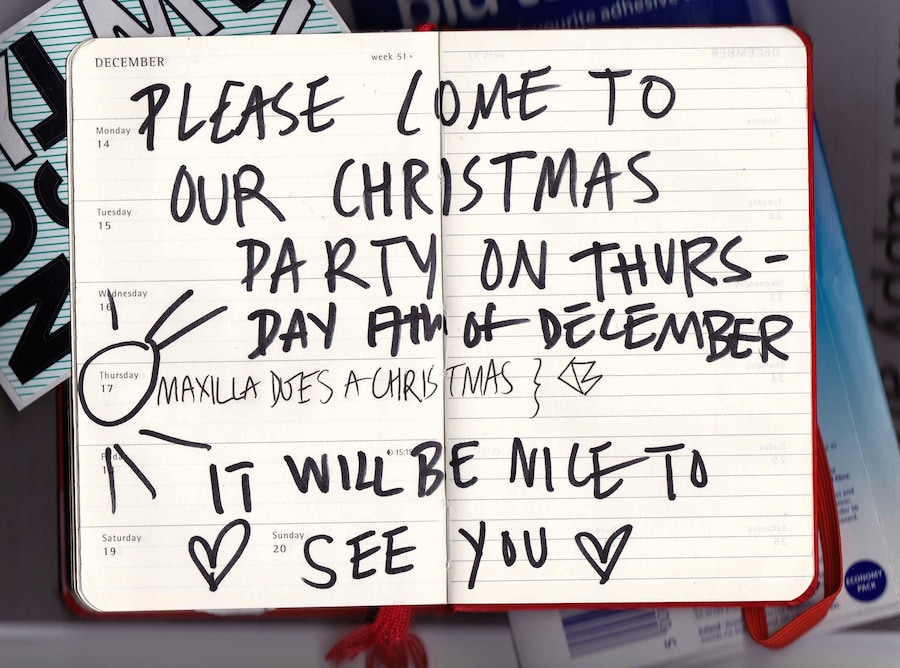 DECEMBER week 51
PLEASE COME TO
Monday
14
OUR CHRISTMAS
Tuesday
15
PARTY ON THURS-
Wednesday
16
DAY 17th of DECEMBER
Thursday
17
MAXILLA DOES A CHRISTMAS }
Friday
18
IT WILL BE NICE TO
Saturday
19
Sunday
20
♡ SEE YOU ♡
favourite adhesive
ECONOMY
PACK